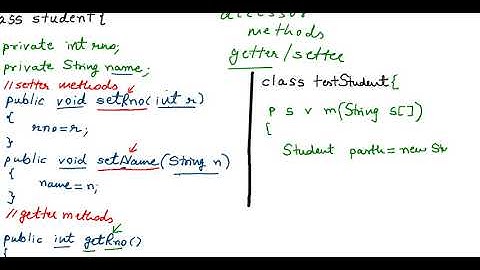 ass student{
private int rno;
private String name;
//setter methods
public void setRno(int r)
{
rno=r;
}
public void setName(String n)
{
name=n;
}
//getter methods
public int getRno()
{
accessor
methods
getter/setter
class testStudent{
p s v m(String s[])
{
Student parth=new St